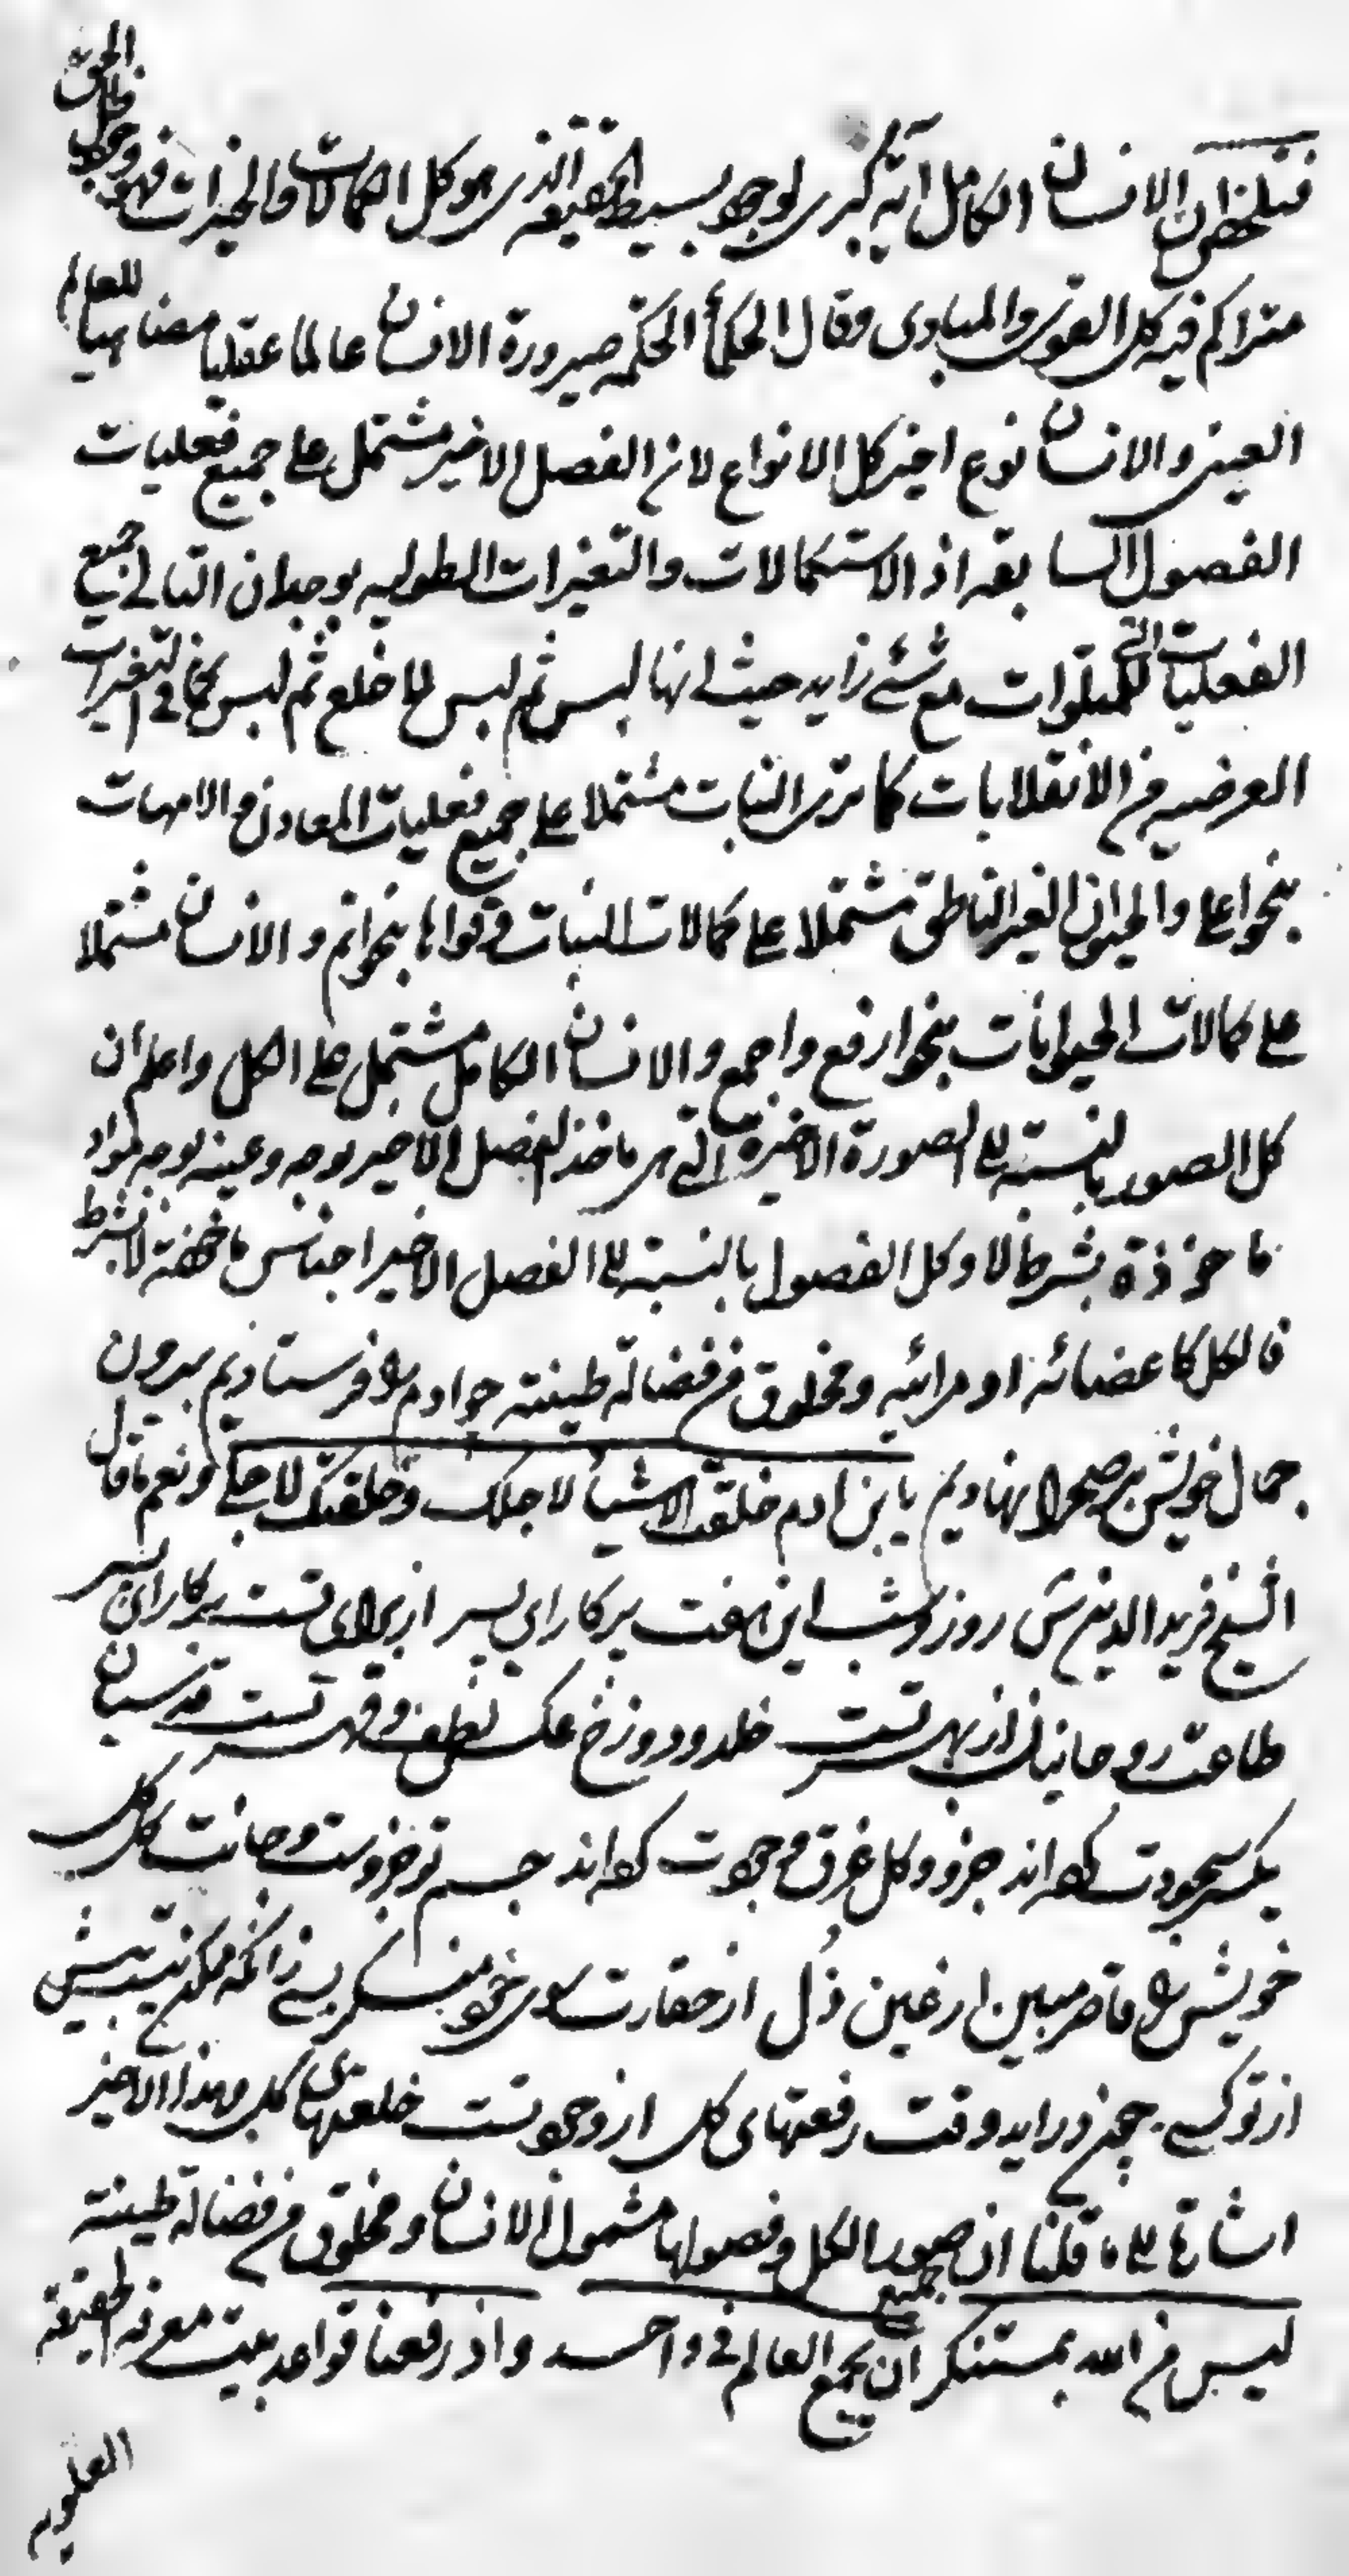 فتلخص ان الانسان الكامل آية كبرى لوجود بسيط الحقيقة الذى هو كل الكمالات والخيرات فهو
متراكم فيه كل القوى والمبادى وقال الحكمأ الحكمة صيرورة الانسان عالما عقليا مضاهيا للعالم
العينى والانسان نوع اخير كل الانواع لان الفصل الاخير مشتمل على جميع فعليات
الفصول السابقة اذ الاستكمالات والتغيرات الطوليه بوجدان التالى جميع
الفعليات التى للمتلوات مع شئ زايد حيث انها لبس ثم لبس لا خلع ثم لبس كما فى التغيرات
العرضيه من الانقلابات كما ترى النبات مشتملا على جميع فعليات المعادن والامهات
بنحو اعلى والحيوان الغير الناطق مشتملا على كمالات النبات وقواها بنحو اتم والانسان مشتملا
على كمالات الحيوانات بنحو ارفع واجمع والانسان الكامل مشتمل على الكل واعلم ان
كل الصور بالنسبة الى الصورة الاخيرة التى هى ماخذ الفصل الاخير بوجه وعينه بوجه مواد
ماخوذة بشرط لا وكل الفصول بالنسبة الى الفصل الاخير اجناس ماخوذة لا بشرط
فالكل كاعضائه او مرائيه ومخلوق من فضالة طينته چو ادم را فرستاديم بيرون
جمال خويش بر صحرا نهاديم يا بن ادم خلقت الاشيأ لاجلك وخلقتك لاجلى ونعم ما قال
الشيخ فريد الدين ش روز وشب اين هفت پركار اى پسر از براى تست بر كار اى پسر
طاعت روحانيان از بهر تست خلد ودوزخ عكس لطف وقهر تست قدسيان
يكسر سجودت كرده اند جزو وكل غرق وجودت كرده اند جسم تو جزوست وجانت كل كل
خويش را قاصر مبين از عين ذل از حقارت سوى خود منگر بسى زانكه ممكن نيست بيش
از تو كسى چون درايد وقت رفعتهاى كل از وجود تست خلعتهاى كل وهذا الاخير
اشارة الى ما قلنا ان صور الكل وفصولها مشمول الانسان ومخلوق من فضالة طينته
ليس من الله بمستنكر ان يجمع العالم فى واحد واذ رفعنا قواعد بيت معرفة الحقيقة
العلويه